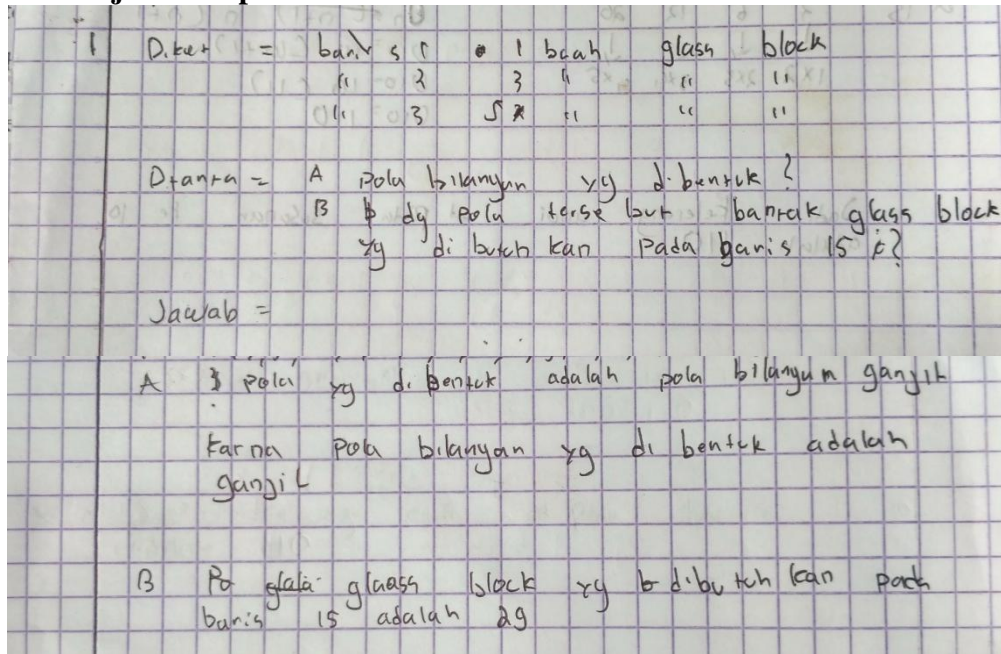 1 Diket = baris 1 1 buah glass block
" 2 3 " " "
" 3 5 " " "
Ditanya = A pola bilangan yg dibentuk ?
B dg pola tersebut banyak glass block
yg di butuh kan pada baris 15 ?
Jawab =
A pola yg di bentuk adalah pola bilangan ganjil
karna pola bilangan yg di bentuk adalah
ganjil
B glaass block yg dibutuh kan pada
baris 15 adalah 29